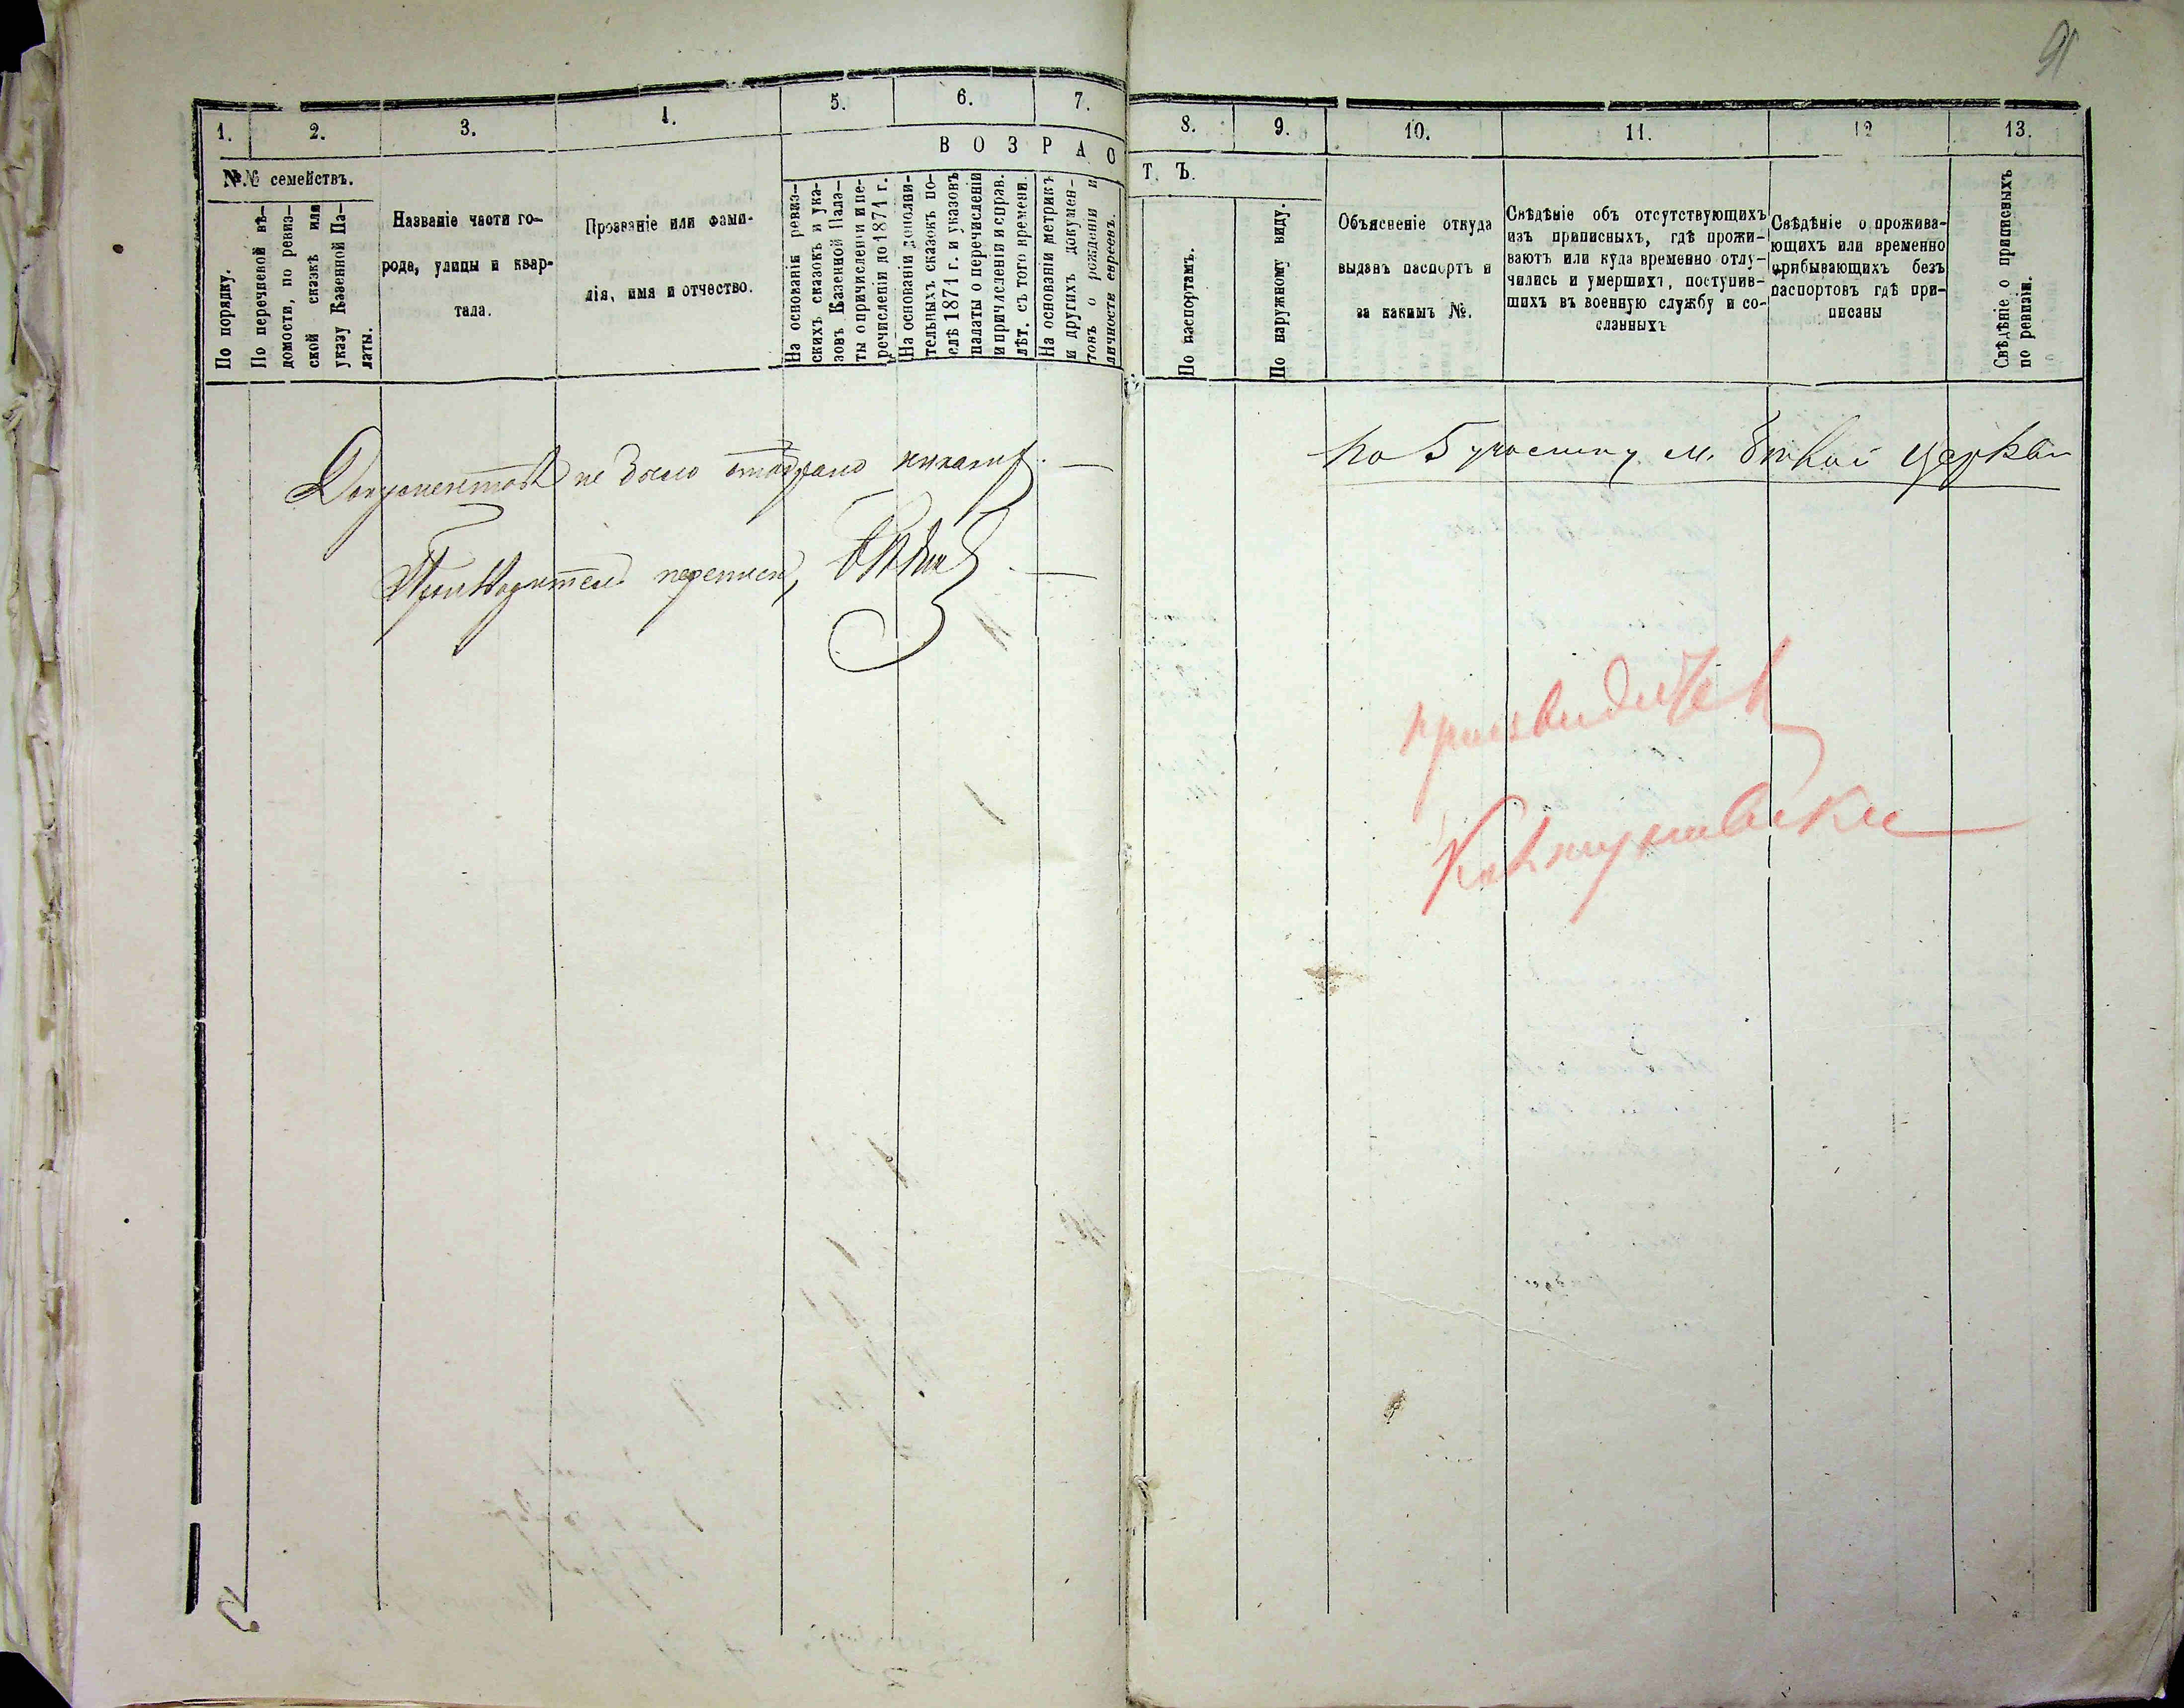 91
1. 2. 3. 4. 5. 6. 7. 8. 9. 10. 11. 12 13.
В О З Р А С Т Ъ.
№№ семействъ.
По порядку.
По перечневой вѣ-
домости, по ревиз-
ской сказкѣ или
указу Казенной Па-
латы.
Названіе части го-
рода, улицы и квар-
тала.
Прозваніе или фами-
лія, имя и отчество.
На основаніи ревиз-
скихъ сказокъ и ука-
зовъ Казенной Пала-
ты о причисленіи и пе-
речисленіи до 1871 г.
На основаніи дополни-
тельныхъ сказокъ по-
слѣ 1871 г. и указовъ
палаты о перечисленіи
и причисленіи и справ.
лѣт. съ того времени.
На основаніи метрикъ
и другихъ докумен-
товъ о рожденіи и
личности евреевъ.
По паспортамъ.
По наружному виду.
Объясненіе откуда
выданъ паспортъ и
за какимъ №.
Свѣдѣніе объ отсутствующихъ
изъ приписныхъ, гдѣ прожи-
ваютъ или куда временно отлу-
чились и умершихъ, поступив-
шихъ въ военную службу и со-
сланныхъ
Свѣдѣніе о прожива-
ющихъ или временно
прибывающихъ безъ
паспортовъ гдѣ при-
писаны
Свѣдѣніе о приписныхъ
по ревизіи.
Документовъ не было отобрано никакихъ.
Производитель переписи,
По 5 участку м. Бѣлой Церкви
производитель